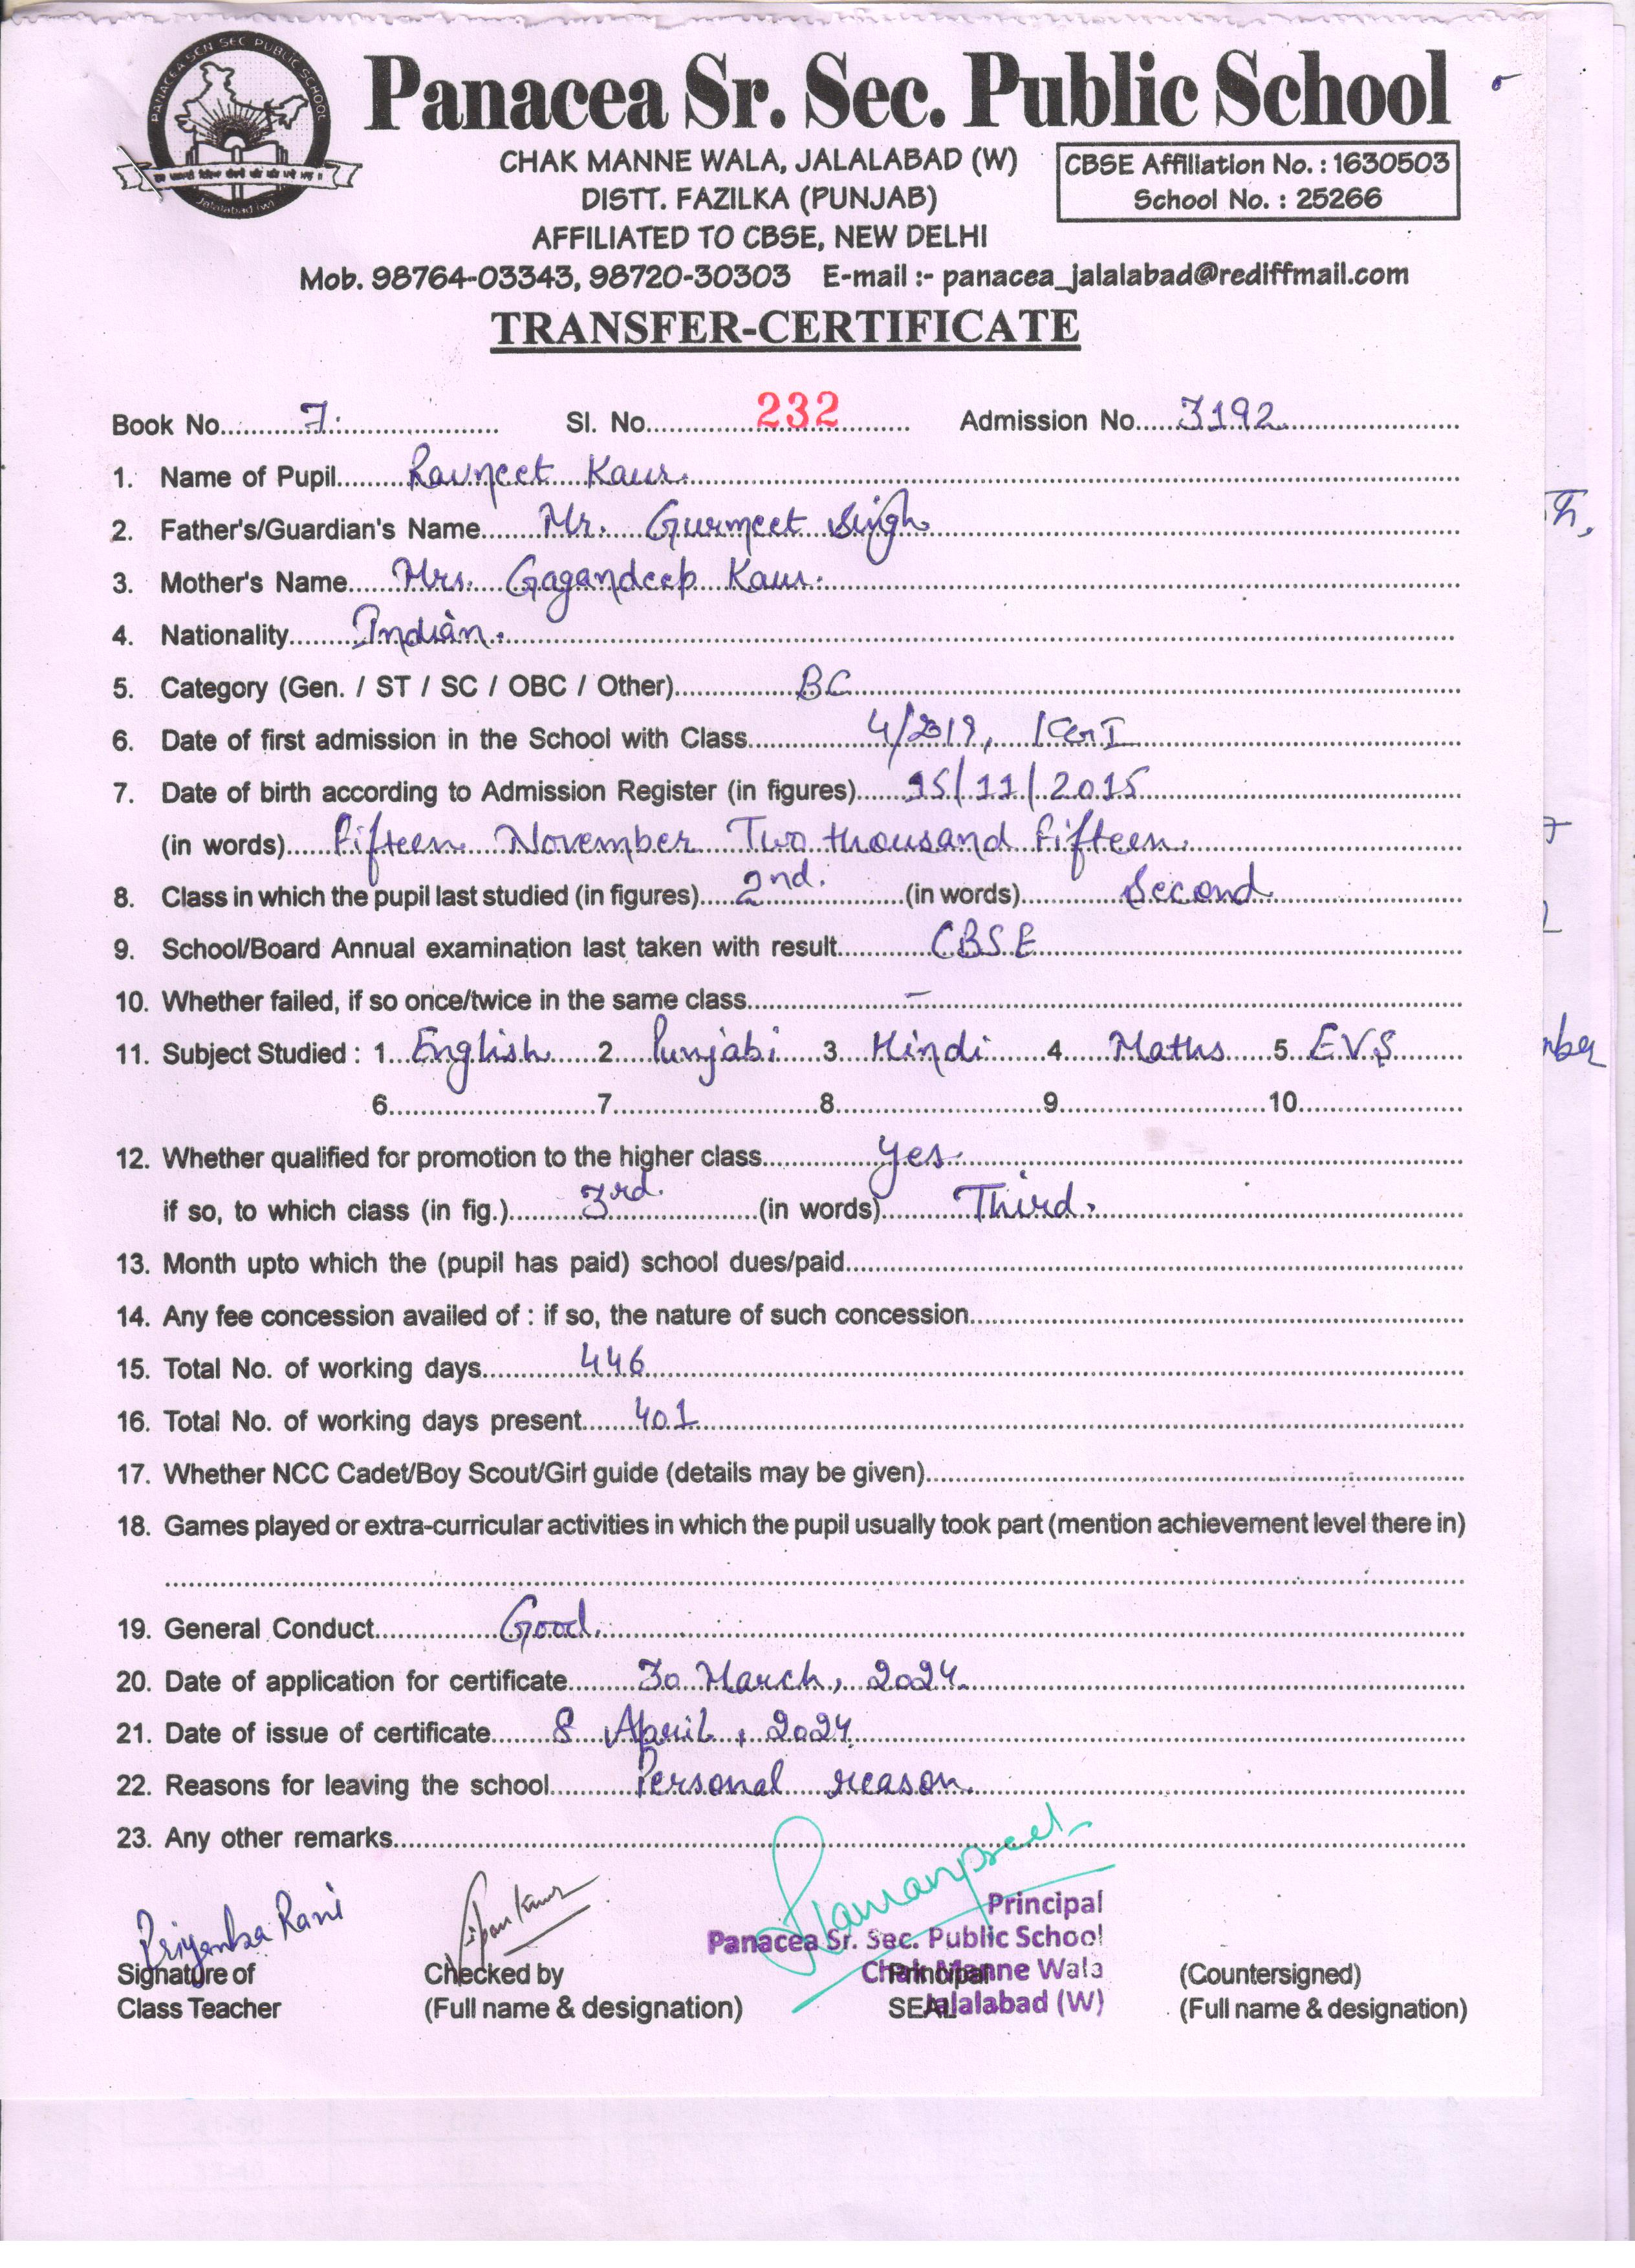 PANACEA SEN SEC PUBLIC SCHOOL
Jalalabad (W)
Panacea Sr. Sec. Public School
CHAK MANNE WALA, JALALABAD (W)
CBSE Affiliation No. : 1630503
School No. : 25266
DISTT. FAZILKA (PUNJAB)
AFFILIATED TO CBSE, NEW DELHI
Mob. 98764-03343, 98720-30303 E-mail :- panacea_jalalabad@rediffmail.com
TRANSFER-CERTIFICATE
Book No. 7. Sl. No. 232 Admission No. 3192
1. Name of Pupil Ravneet Kaur.
2. Father's/Guardian's Name Mr. Gurmeet Singh
3. Mother's Name Mrs. Gagandeep Kaur.
4. Nationality Indian.
5. Category (Gen. / ST / SC / OBC / Other) BC
6. Date of first admission in the School with Class 4/2019,
7. Date of birth according to Admission Register (in figures) 15/11/2015
(in words) Fifteen November Two thousand Fifteen.
8. Class in which the pupil last studied (in figures) 2nd. (in words) Second
9. School/Board Annual examination last taken with result CBSE
10. Whether failed, if so once/twice in the same class –
11. Subject Studied : 1. English 2. Punjabi 3. Hindi 4. Maths 5. EVS
6. 7. 8. 9. 10.
12. Whether qualified for promotion to the higher class Yes.
if so, to which class (in fig.) 3rd. (in words) Third.
13. Month upto which the (pupil has paid) school dues/paid
14. Any fee concession availed of : if so, the nature of such concession
15. Total No. of working days 446
16. Total No. of working days present 401
17. Whether NCC Cadet/Boy Scout/Girl guide (details may be given)
18. Games played or extra-curricular activities in which the pupil usually took part (mention achievement level there in)
19. General Conduct Good.
20. Date of application for certificate 30 March, 2024.
21. Date of issue of certificate 8 April, 2024.
22. Reasons for leaving the school Personal reason.
23. Any other remarks
Priyanka Rani
Ramanpreet
Principal
Panacea Sr. Sec. Public School
Chak Manne Wala
Jalalabad (W)
Signature of Checked by Principal (Countersigned)
Class Teacher (Full name & designation) SEAL (Full name & designation)